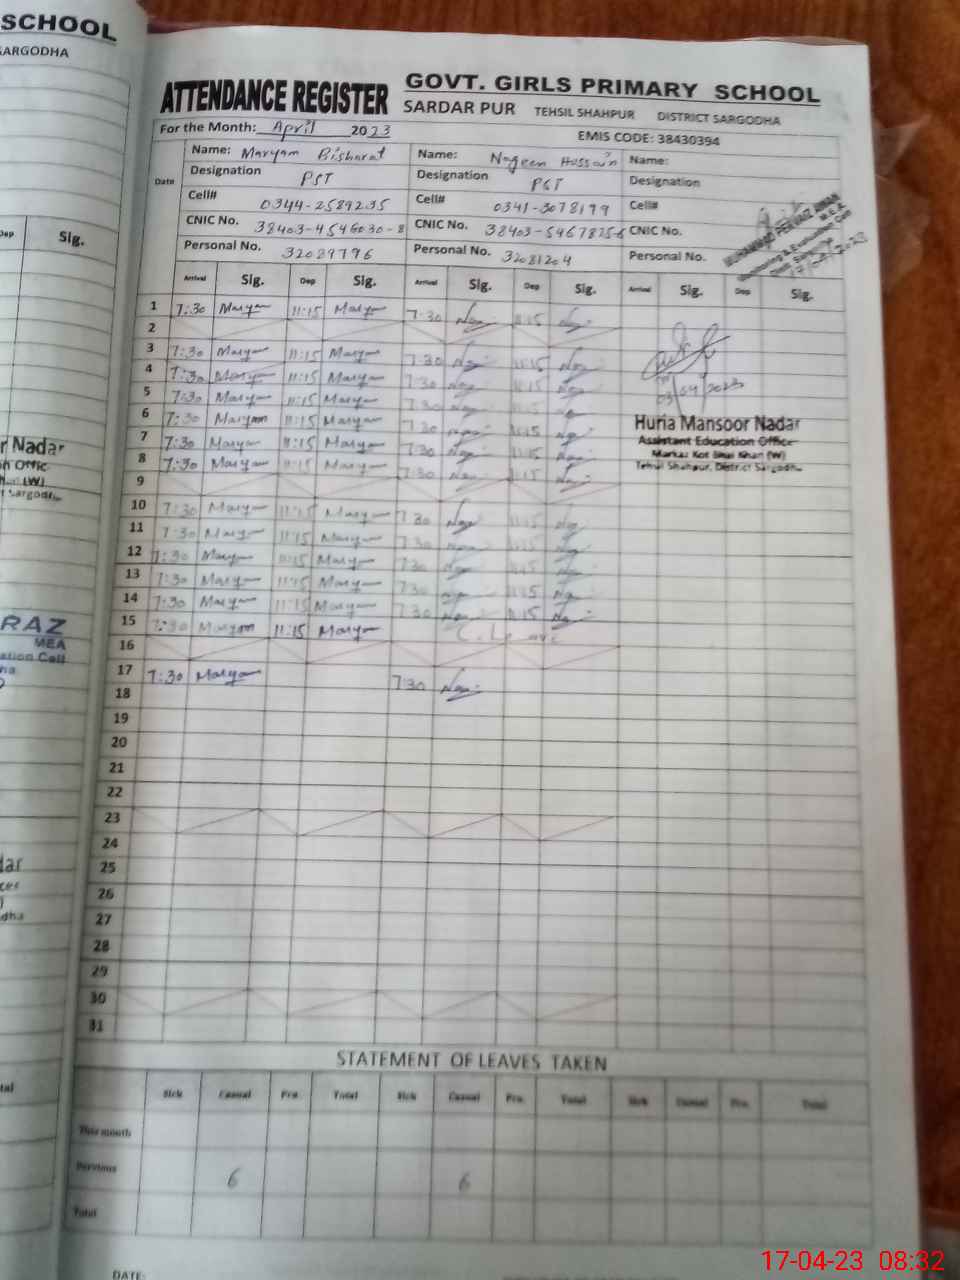 SCHOOL
SARGODHA
ATTENDANCE REGISTER
GOVT. GIRLS PRIMARY SCHOOL
SARDAR PUR TEHSIL SHAHPUR DISTRICT SARGODHA
For the Month: April 2023
EMIS CODE: 38430394
Date
Name: Maryam Bisharat Name: Nageen Hussain Name:
Designation PST Designation PST Designation
Cell# 0344-2589235 Cell# 0341-3078199 Cell#
CNIC No. 38403-4546030-8 CNIC No. 38403-5467825-6 CNIC No.
Personal No. 32089796 Personal No. 32081204 Personal No.
Arrival Sig. Dep Sig. Arrival Sig. Dep Sig. Arrival Sig. Dep Sig.
1 7:30 Maryam 11:15 Maryam 7:30 11:15
2
3 7:30 Maryam 11:15 Maryam 7:30 11:15
4 7:30 Maryam 11:15 Maryam 7:30 11:15
5 7:30 Maryam 11:15 Maryam 7:30 11:15
6 7:30 Maryam 11:15 Maryam 7:30 11:15
7 7:30 Maryam 11:15 Maryam 7:30 11:15
8 7:30 Maryam 11:15 Maryam 7:30 11:15
9
10 7:30 Maryam 11:15 Maryam 7:30 11:15
11 7:30 Maryam 11:15 Maryam 7:30 11:15
12 7:30 Maryam 11:15 Maryam 7:30 11:15
13 7:30 Maryam 11:15 Maryam 7:30 11:15
14 7:30 Maryam 11:15 Maryam 7:30 11:15
15 7:30 Maryam 11:15 Maryam C.Leave
16
17 7:30 Maryam 7:30
18
19
20
21
22
23
24
25
26
27
28
29
30
31
03/04/2023
Huria Mansoor Nadar
Assistant Education Office
Markaz Kot Bhai Khan (W)
Tehsil Shahpur, District Sargodha
MUHAMMAD PERVAIZ
M.E.A
Monitoring & Evaluation Cell
STATEMENT OF LEAVES TAKEN
Sick Casual Pra. Total Sick Casual Pra. Total Sick Casual Pra. Total
This month
Pervious 6 6
Total
DATE:
Dep Sig.
r Nadar
(W)
t Sargodh
RAZ
MEA
ation Cell
17-04-23 08:32